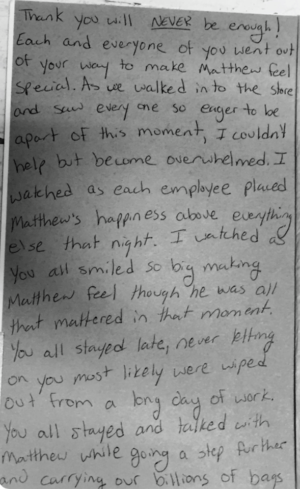 Thank you will NEVER be enough!
Each and everyone of you went out
of your way to make Matthew feel
special. As we walked in to the store
and saw every one so eager to be
apart of this moment, I couldn't
help but become overwhelmed. I
watched as each employee placed
Matthew's happiness above everything
else that night. I watched as
you all smiled so big making
Matthew feel though he was all
that mattered in that moment.
You all stayed late, never letting
on you most likely were wiped
out from a long day of work.
You all stayed and talked with
Matthew while going a step further
and carrying our billions of bags